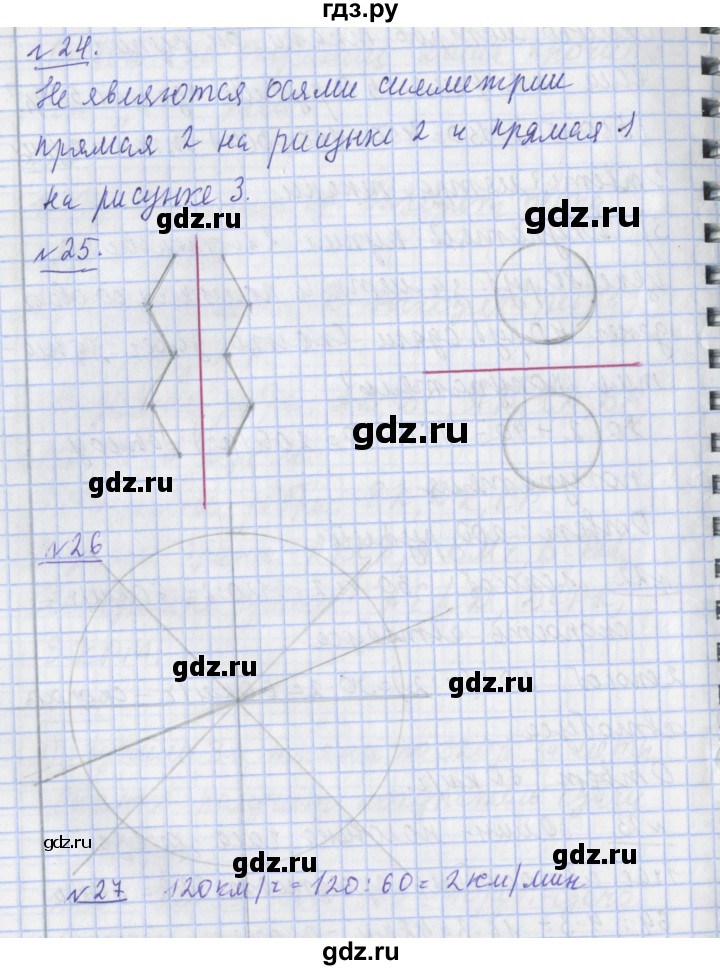 гдз.ру
№24.
Не являются осями симметрии
прямая 2 на рисунке 2 и прямая 1
на рисунке 3.
gdz.ru
gdz.ru
№25.
gdz.ru
gdz.ru
№26
gdz.ru
gdz.ru
gdz.ru
gdz.ru
gdz.ru
№27 120км/ч=120:60=2км/мин
gdz.ru